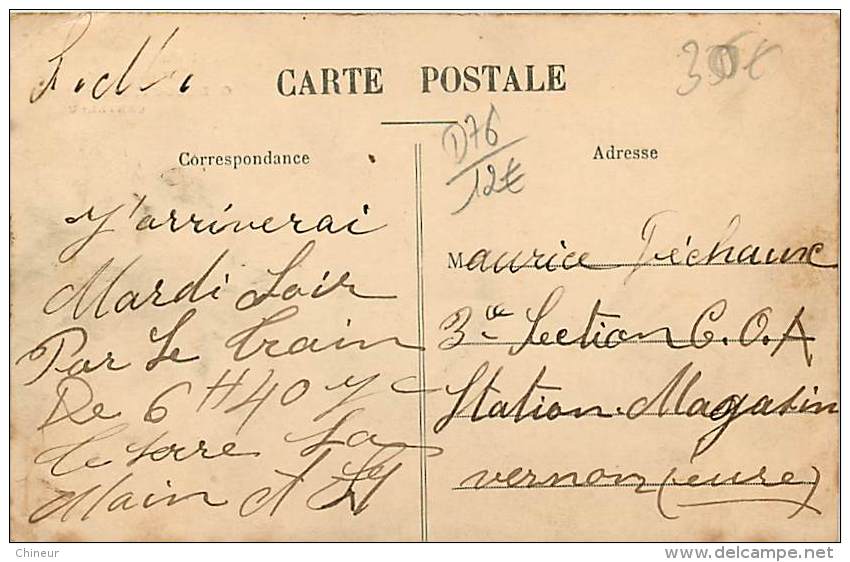 F. M.
35€
CARTE POSTALE
D76
12€
Correspondance
J'arriverai
Mardi Soir
Par Le train
De 6 H 40 Je
te serre La
Main
Adresse
Maurice Féchaux
3e Section C.O.A
Station-Magasin
vernon (eure)
Chineur
delcampe.net